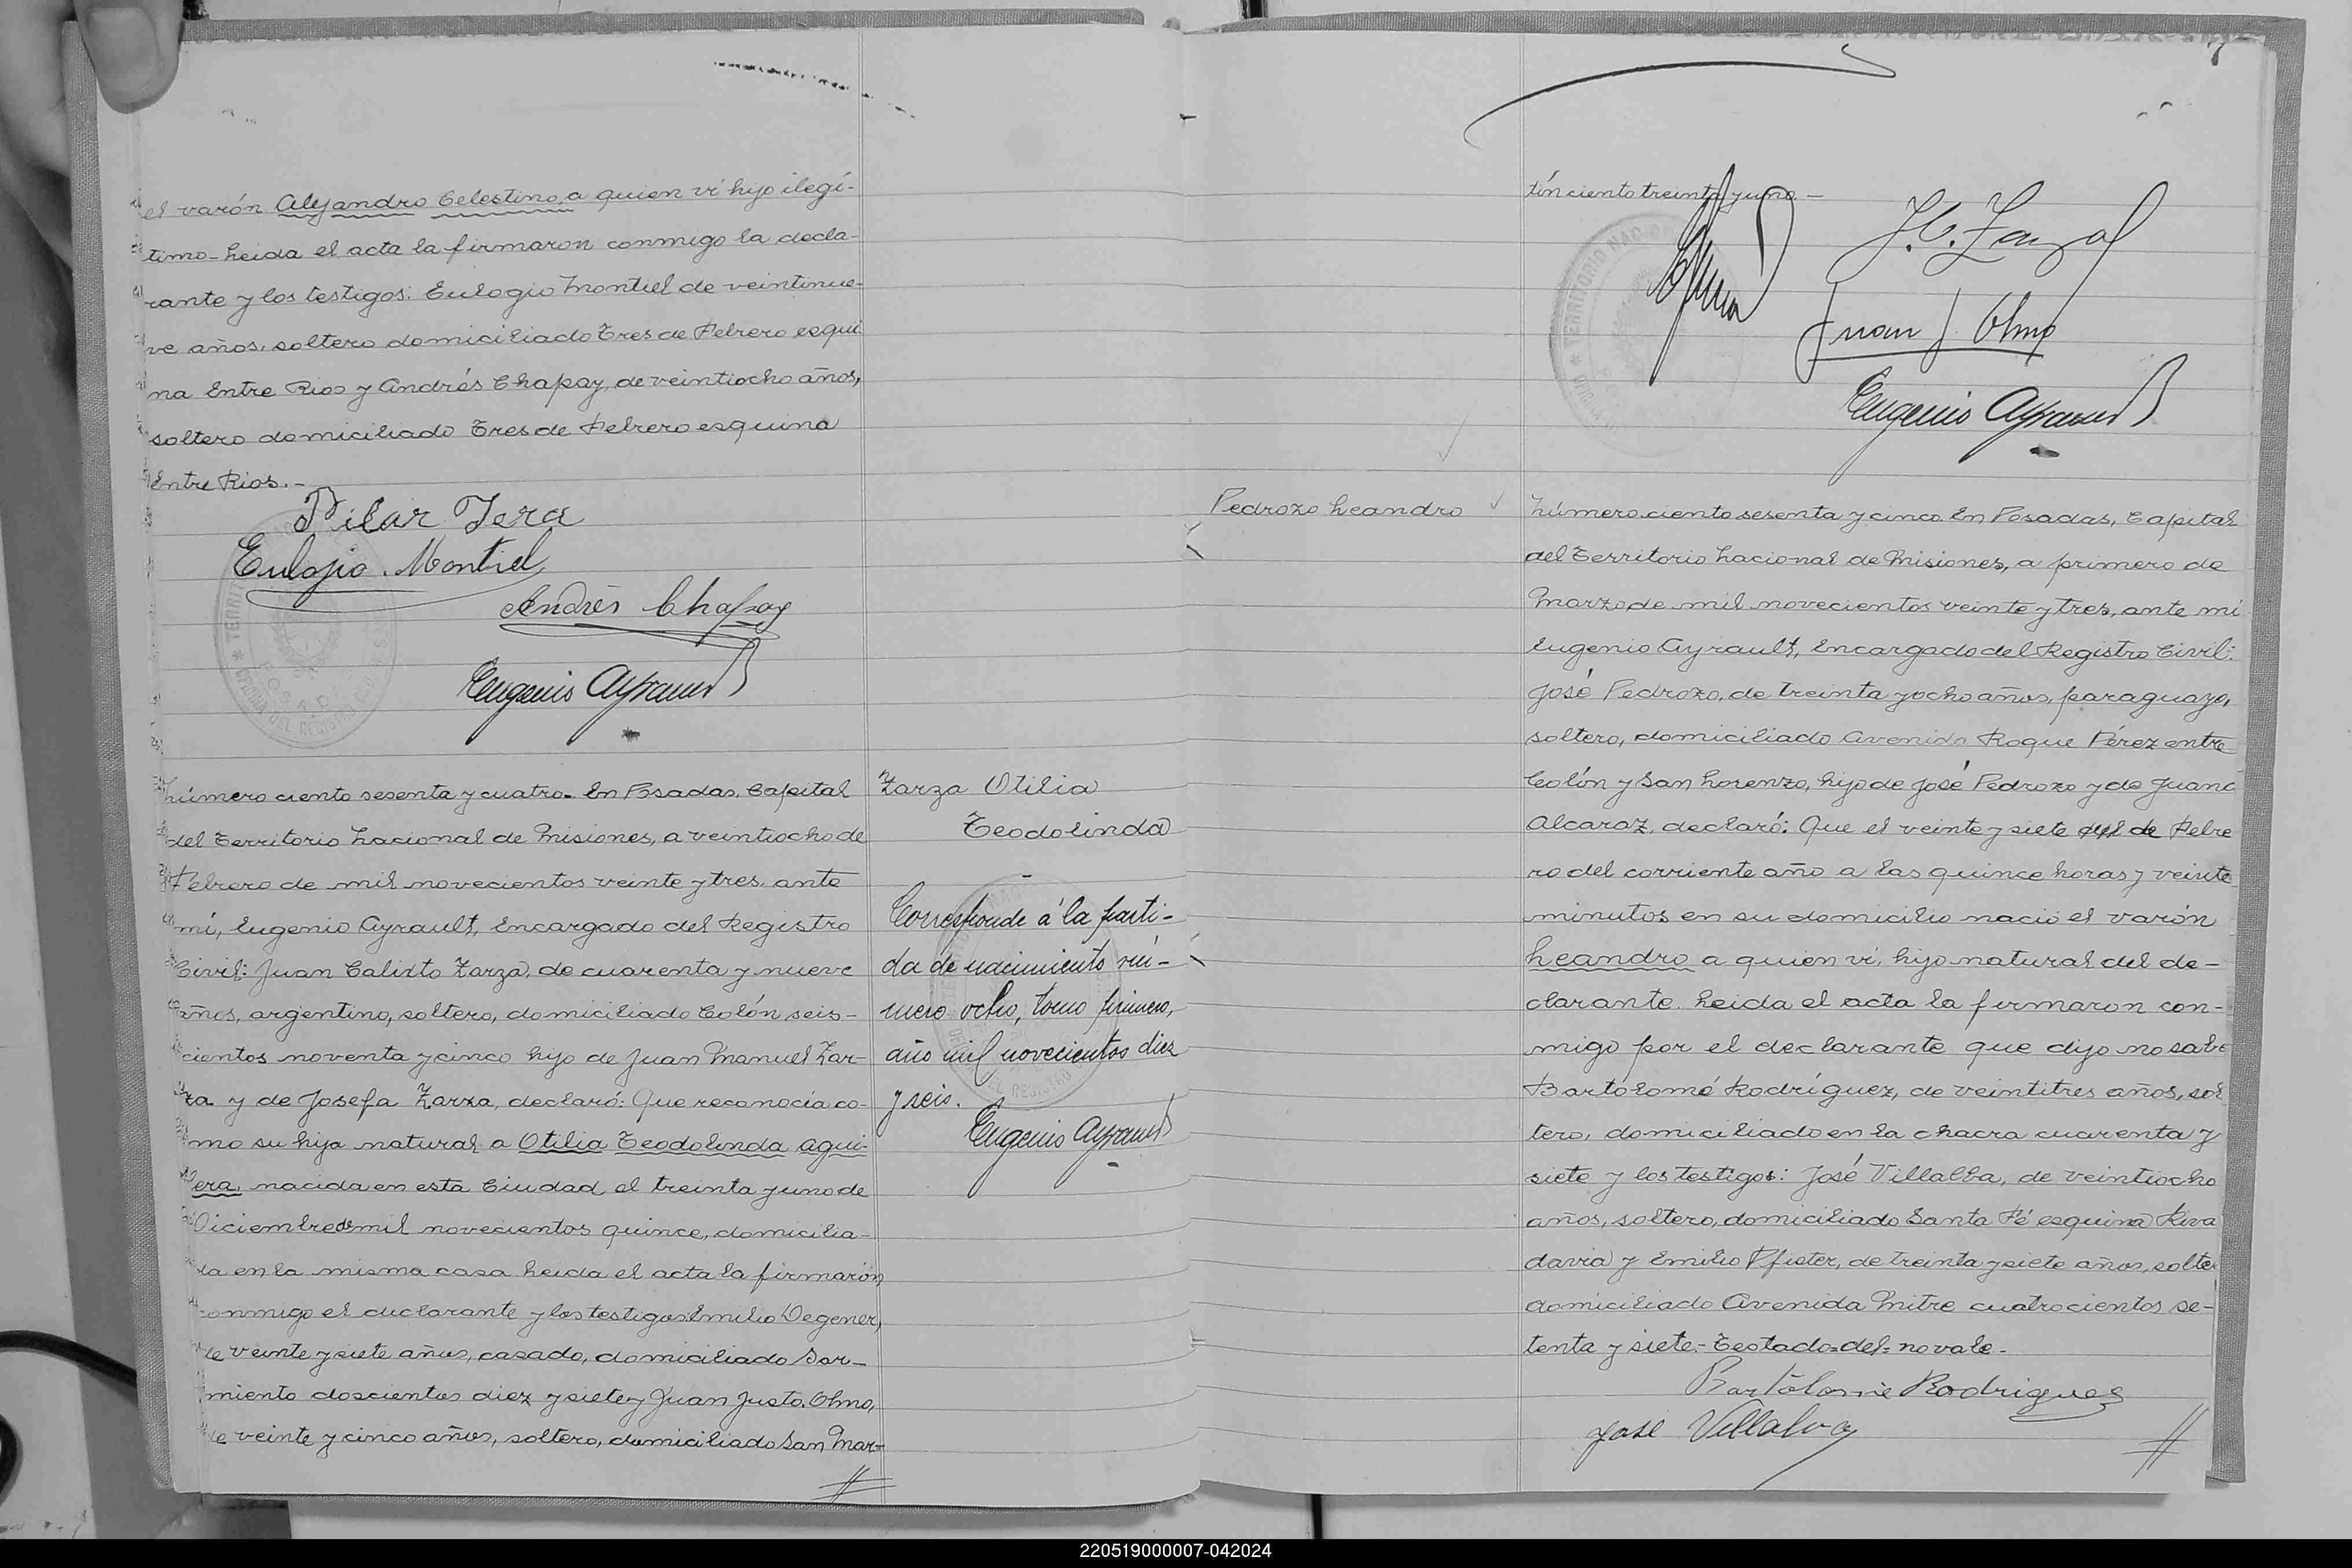 el varón Alejandro Celestino, a quien ví hijo ilegí-
timo- Leida el acta la firmaron conmigo la decla-
rante y los testigos: Eulogio Montiel de veintinue-
ve años, soltero domiciliado Tres de Febrero esqui
na Entre Rios y Andrés Chapay, de veintiocho años,
soltero domiciliado Tres de Febrero esquina
Entre Rios.-
Pilar Jera
Eulojio Montiel
Andrés Chapay
Eugenio Ayrault
Número ciento sesenta y cuatro. En Posadas, Capital
del Territorio Nacional de Misiones, a veintiocho de
Febrero de mil novecientos veinte y tres, ante
mí, Eugenio Ayrault, Encargado del Registro
Civil: Juan Calixto Zarza, de cuarenta y nueve
años, argentino, soltero, domiciliado Colón seis-
cientos noventa y cinco hijo de Juan Manuel Zar-
za y de Josefa Zarza, declaró: Que reconocía co-
mo su hija natural a Otilia Teodolinda Agui-
lera, nacida en esta Ciudad el treinta y uno de
Diciembre de mil novecientos quince, domicilia-
da en la misma casa Leida el acta la firmarón
conmigo el declarante y los testigos: Emilio Degener,
de veinte y siete años, casado, domiciliado Sar-
miento doscientos diez y siete y Juan Justo Olmo,
de veinte y cinco años, soltero, domiciliado San Mar-
Zarza Otilia
Teodolinda
Corresponde á la parti-
da de nacimiento nú-
mero ocho, tomo primero,
año mil novecientos diez
y seis.
Eugenio Ayrault
7
tín ciento treinta y uno.-
Juan J. Olmo
Eugenio Ayrault
Pedrozo Leandro
Número ciento sesenta y cinco. En Posadas, Capital
del Territorio Nacional de Misiones, a primero de
Marzo de mil novecientos veinte y tres, ante mí
Eugenio Ayrault, Encargado del Registro Civil:
José Pedrozo, de treinta y ocho años, paraguayo,
soltero, domiciliado Avenida Roque Pérez entre
Colón y San Lorenzo, hijo de José Pedrozo y de Juana
Alcaraz, declaró: Que el veinte y siete del de Febre
ro del corriente año a las quince horas y veinte
minutos en su domicilio nació el varón
Leandro a quien ví, hijo natural del de-
clarante. Leida el acta la firmaron con-
migo por el declarante que dijo no sabe
Bartolomé Rodríguez, de veintitres años, sol
tero, domiciliado en la chacra cuarenta y
siete y los testigos: José Villalba, de veintiocho
años, soltero, domiciliado Santa Fé esquina Riva
davia y Emilio Pfister, de treinta y siete años, solte
domiciliado Avenida Mitre cuatrocientos se-
tenta y siete.- Testado=del=no vale.-
Bartolomé Rodriguez
José Villalva
220519000007-042024